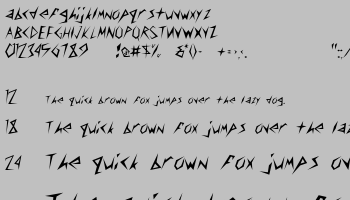 abcdefghijklmnopqrstuvwxyz
ABCDEFGHIJKLMNOPQRSTUVWXYZ
0123456789 !@#$% &()-
12 The quick brown fox jumps over the lazy dog.
18 The quick brown fox jumps over the la
24 The quick brown fox jumps ov